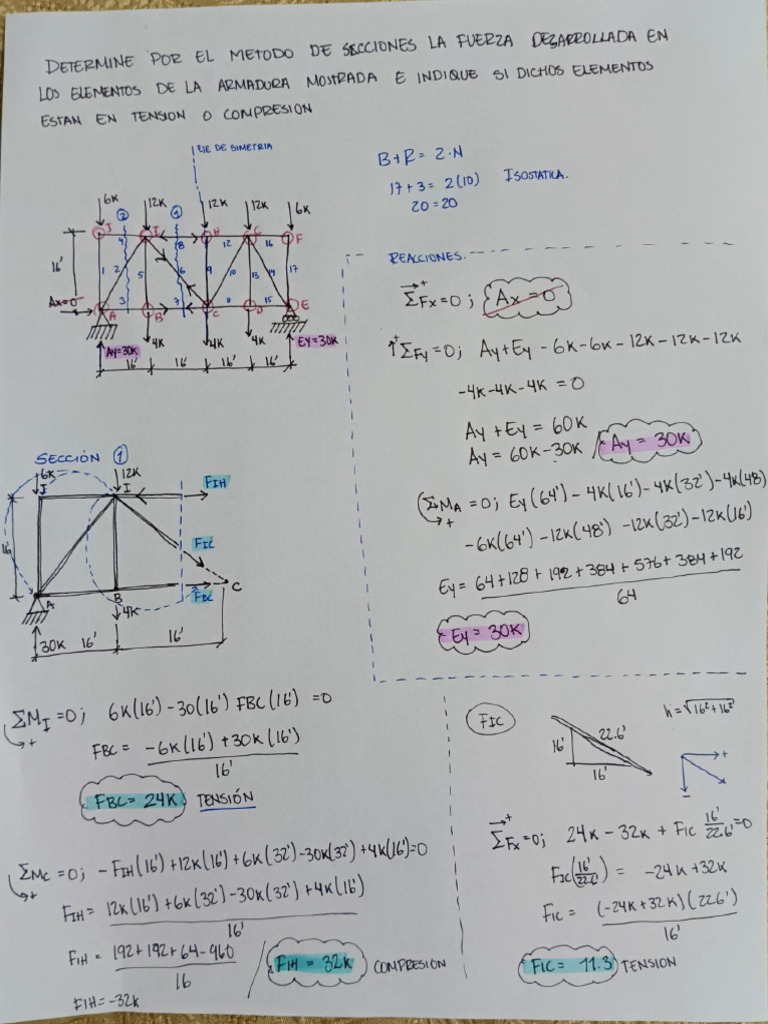 DETERMINE POR EL METODO DE SECCIONES LA FUERZA DESARROLLADA EN
LOS ELEMENTOS DE LA ARMADURA MOSTRADA E INDIQUE SI DICHOS ELEMENTOS
ESTAN EN TENSION O COMPRESION
EJE DE SIMETRIA
6K 12K 12K 12K 6K
② ①
J I H G F
4 8 12 16
16'
1 2 5 6 9 10 13 14 17
Ax=0
3 7 11 15
A B C D E
4K 4K 4K
Ay=30K Ey=30K
16' 16' 16' 16'
B+R = 2·N
17+3 = 2(10) ISOSTATICA.
20=20
REACCIONES.
→+ ΣFx=0; Ax=0
↑+ ΣFy=0; Ay+Ey-6K-6K-12K-12K-12K
-4K-4K-4K = 0
Ay+Ey = 60K
Ay = 60K-30K / Ay = 30K
ΣMA=0; Ey(64')-4K(16')-4K(32')-4K(48)
+
-6K(64')-12K(48')-12K(32')-12K(16')
Ey = 64+128+192+384+576+384+192
64
Ey = 30K
SECCIÓN ①
6K 12K
J I FIH
16
FIC
A B FBC C
4K
30K 16' 16'
ΣMI=0; 6K(16')-30(16') FBC(16') =0
+
FBC = -6K(16')+30K(16')
16'
FBC= 24K TENSIÓN
ΣMc=0; -FIH(16')+12K(16')+6K(32')-30K(32')+4K(16')=0
+
FIH= 12K(16')+6K(32')-30K(32')+4K(16')
16'
FIH= 192+192+64-960
16
FIH = 32K COMPRESION
FIH=-32K
FIC
16' 22.6'
16'
h=√16²+16²
+
-
→+ ΣFx=0; 24K-32K+FIC 16'/22.6'=0
FIC(16'/22.6') = -24K+32K
FIC = (-24K+32K)(22.6')
16'
FIC = 11.3 TENSION